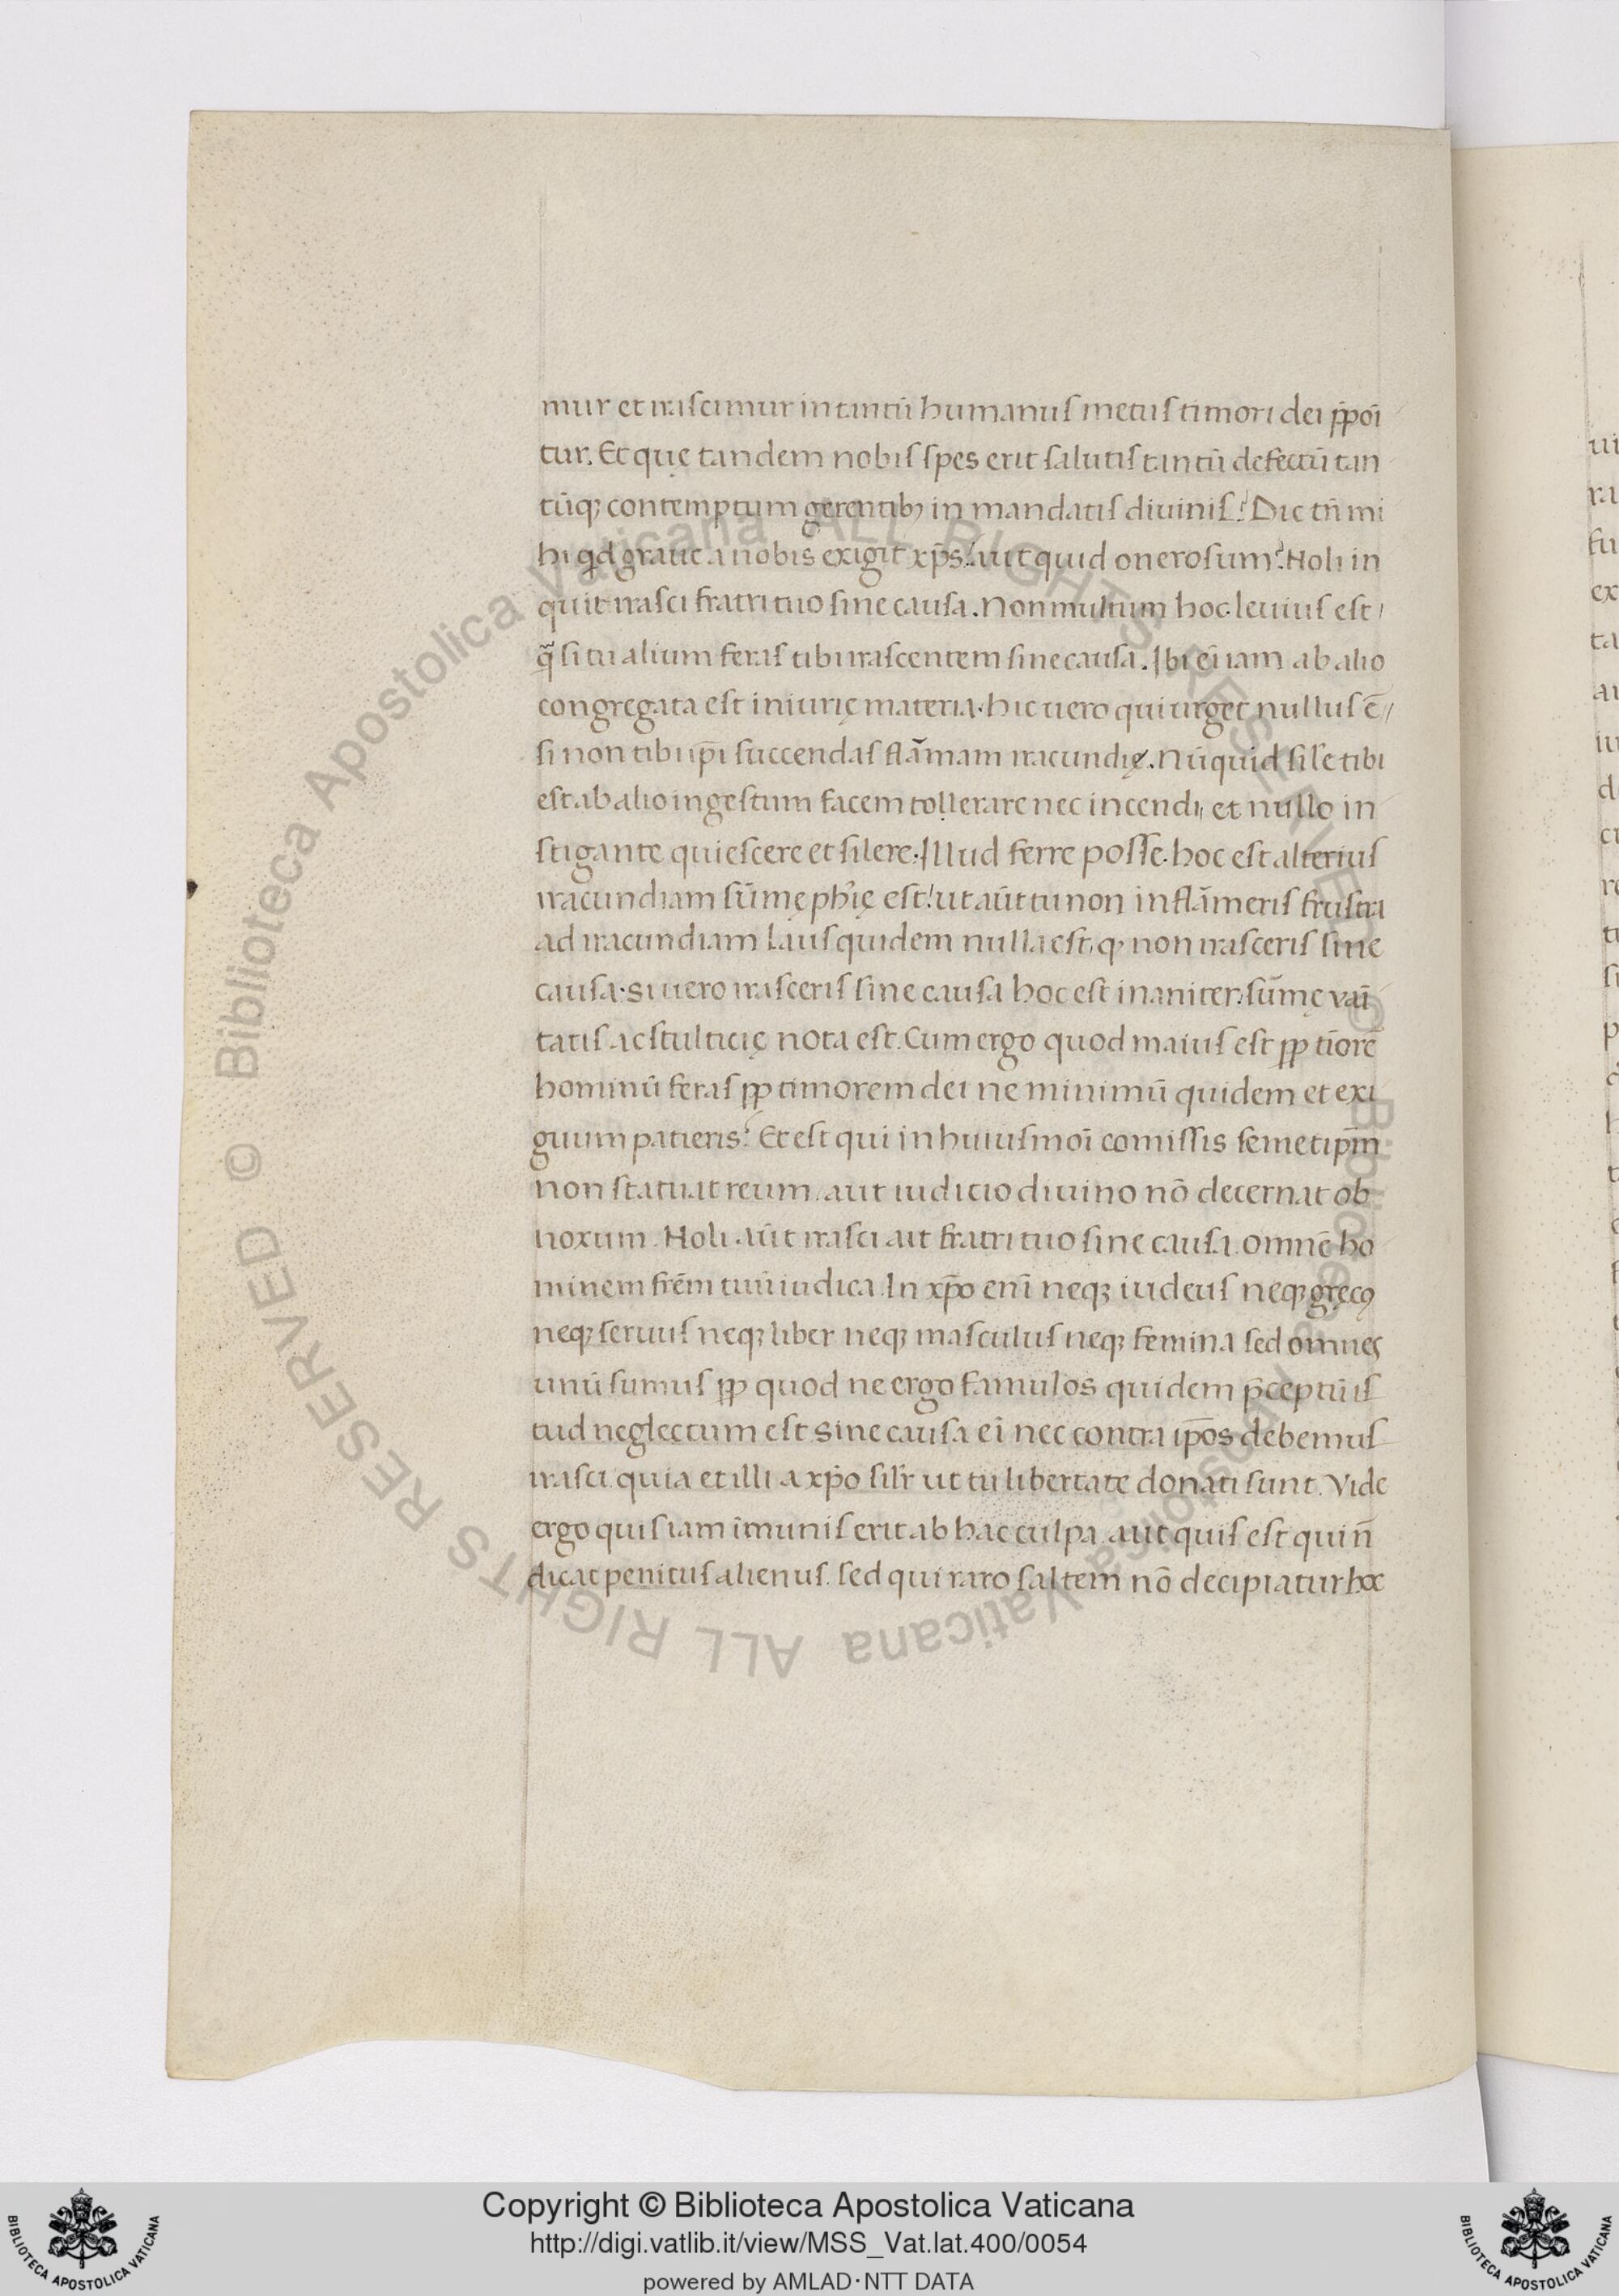 mur et irascimur in tantū humanus metus timori dei p̄poī
tur. Et quę tandem nobis spes erit salutis tantū defectū tan
tūq; contemptum gerentib; in mandatis diuinis? Dic tñ mi
hi qd graue a nobis exigit xp̄s? aut quid onerosum? Noli in
quit irasci fratri tuo sine causa. Non multum hoc leuius est
q̄ si tu alium feras tibi irascentem sine causa. Ibi eī iam ab alio
congregata est iniurię materia. hic uero qui urget nullus ē
si non tibi ip̄i succendas flāmam iracundię. Nūquid sile tibi
est ab alio ingestum facem tollerare nec incendi, et nullo in
stigante quiescere et silere. Illud ferre posse. hoc est alterius
iracundiam sūmę ph'ię est! ut aūt tu non inflāmeris frustra
ad iracundiam laus quidem nulla est, q; non irasceris sine
causa. si uero irasceris sine causa hoc est inaniter. sūmę vaī
tatis ac stulticię nota est. Cum ergo quod maius est pp tīorē
hominū feras pp timorem dei ne minimū quidem et exi
guum patieris? Et est qui in huiusmoī comissis semetip̄m
non statuat reum. aut iudicio diuino nō decernat ob
noxum. Noli aūt irasci ait fratri tuo sine causa. omnē ho
minem frēm tuū iudica. In xp̄o enī neq; iudeus neq; grecꝰ
neq; seruus neq; liber neq; masculus neq; femina sed omnes
unū sumus pp quod ne ergo famulos quidem p̄ceptū is
tud neglectum est. Sine causa eī nec contra ip̄os debemus
irasci. quia et illi a xp̄o silr ut tu libertate donati sunt. Vide
ergo quis iam īmunis erit ab hac culpa. aut quis est qui n̄
dicat penitus alienus. sed qui raro saltem nō decipiatur hoc
Copyright © Biblioteca Apostolica Vaticana
http://digi.vatlib.it/view/MSS_Vat.lat.400/0054
powered by AMLAD·NTT DATA
© Biblioteca Apostolica Vaticana ALL RIGHTS RESERVED
© Biblioteca Apostolica Vaticana ALL RIGHTS RESERVED
BIBLIOTECA APOSTOLICA VATICANA
BIBLIOTECA APOSTOLICA VATICANA